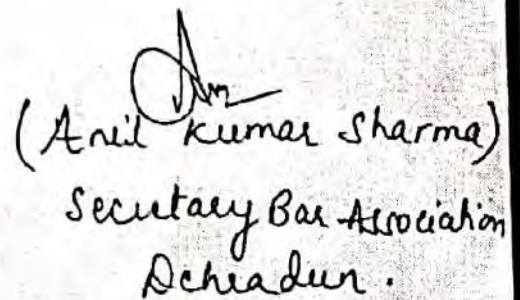 (Anil Kumar Sharma)
Secretary Bar Association
Dehradun.